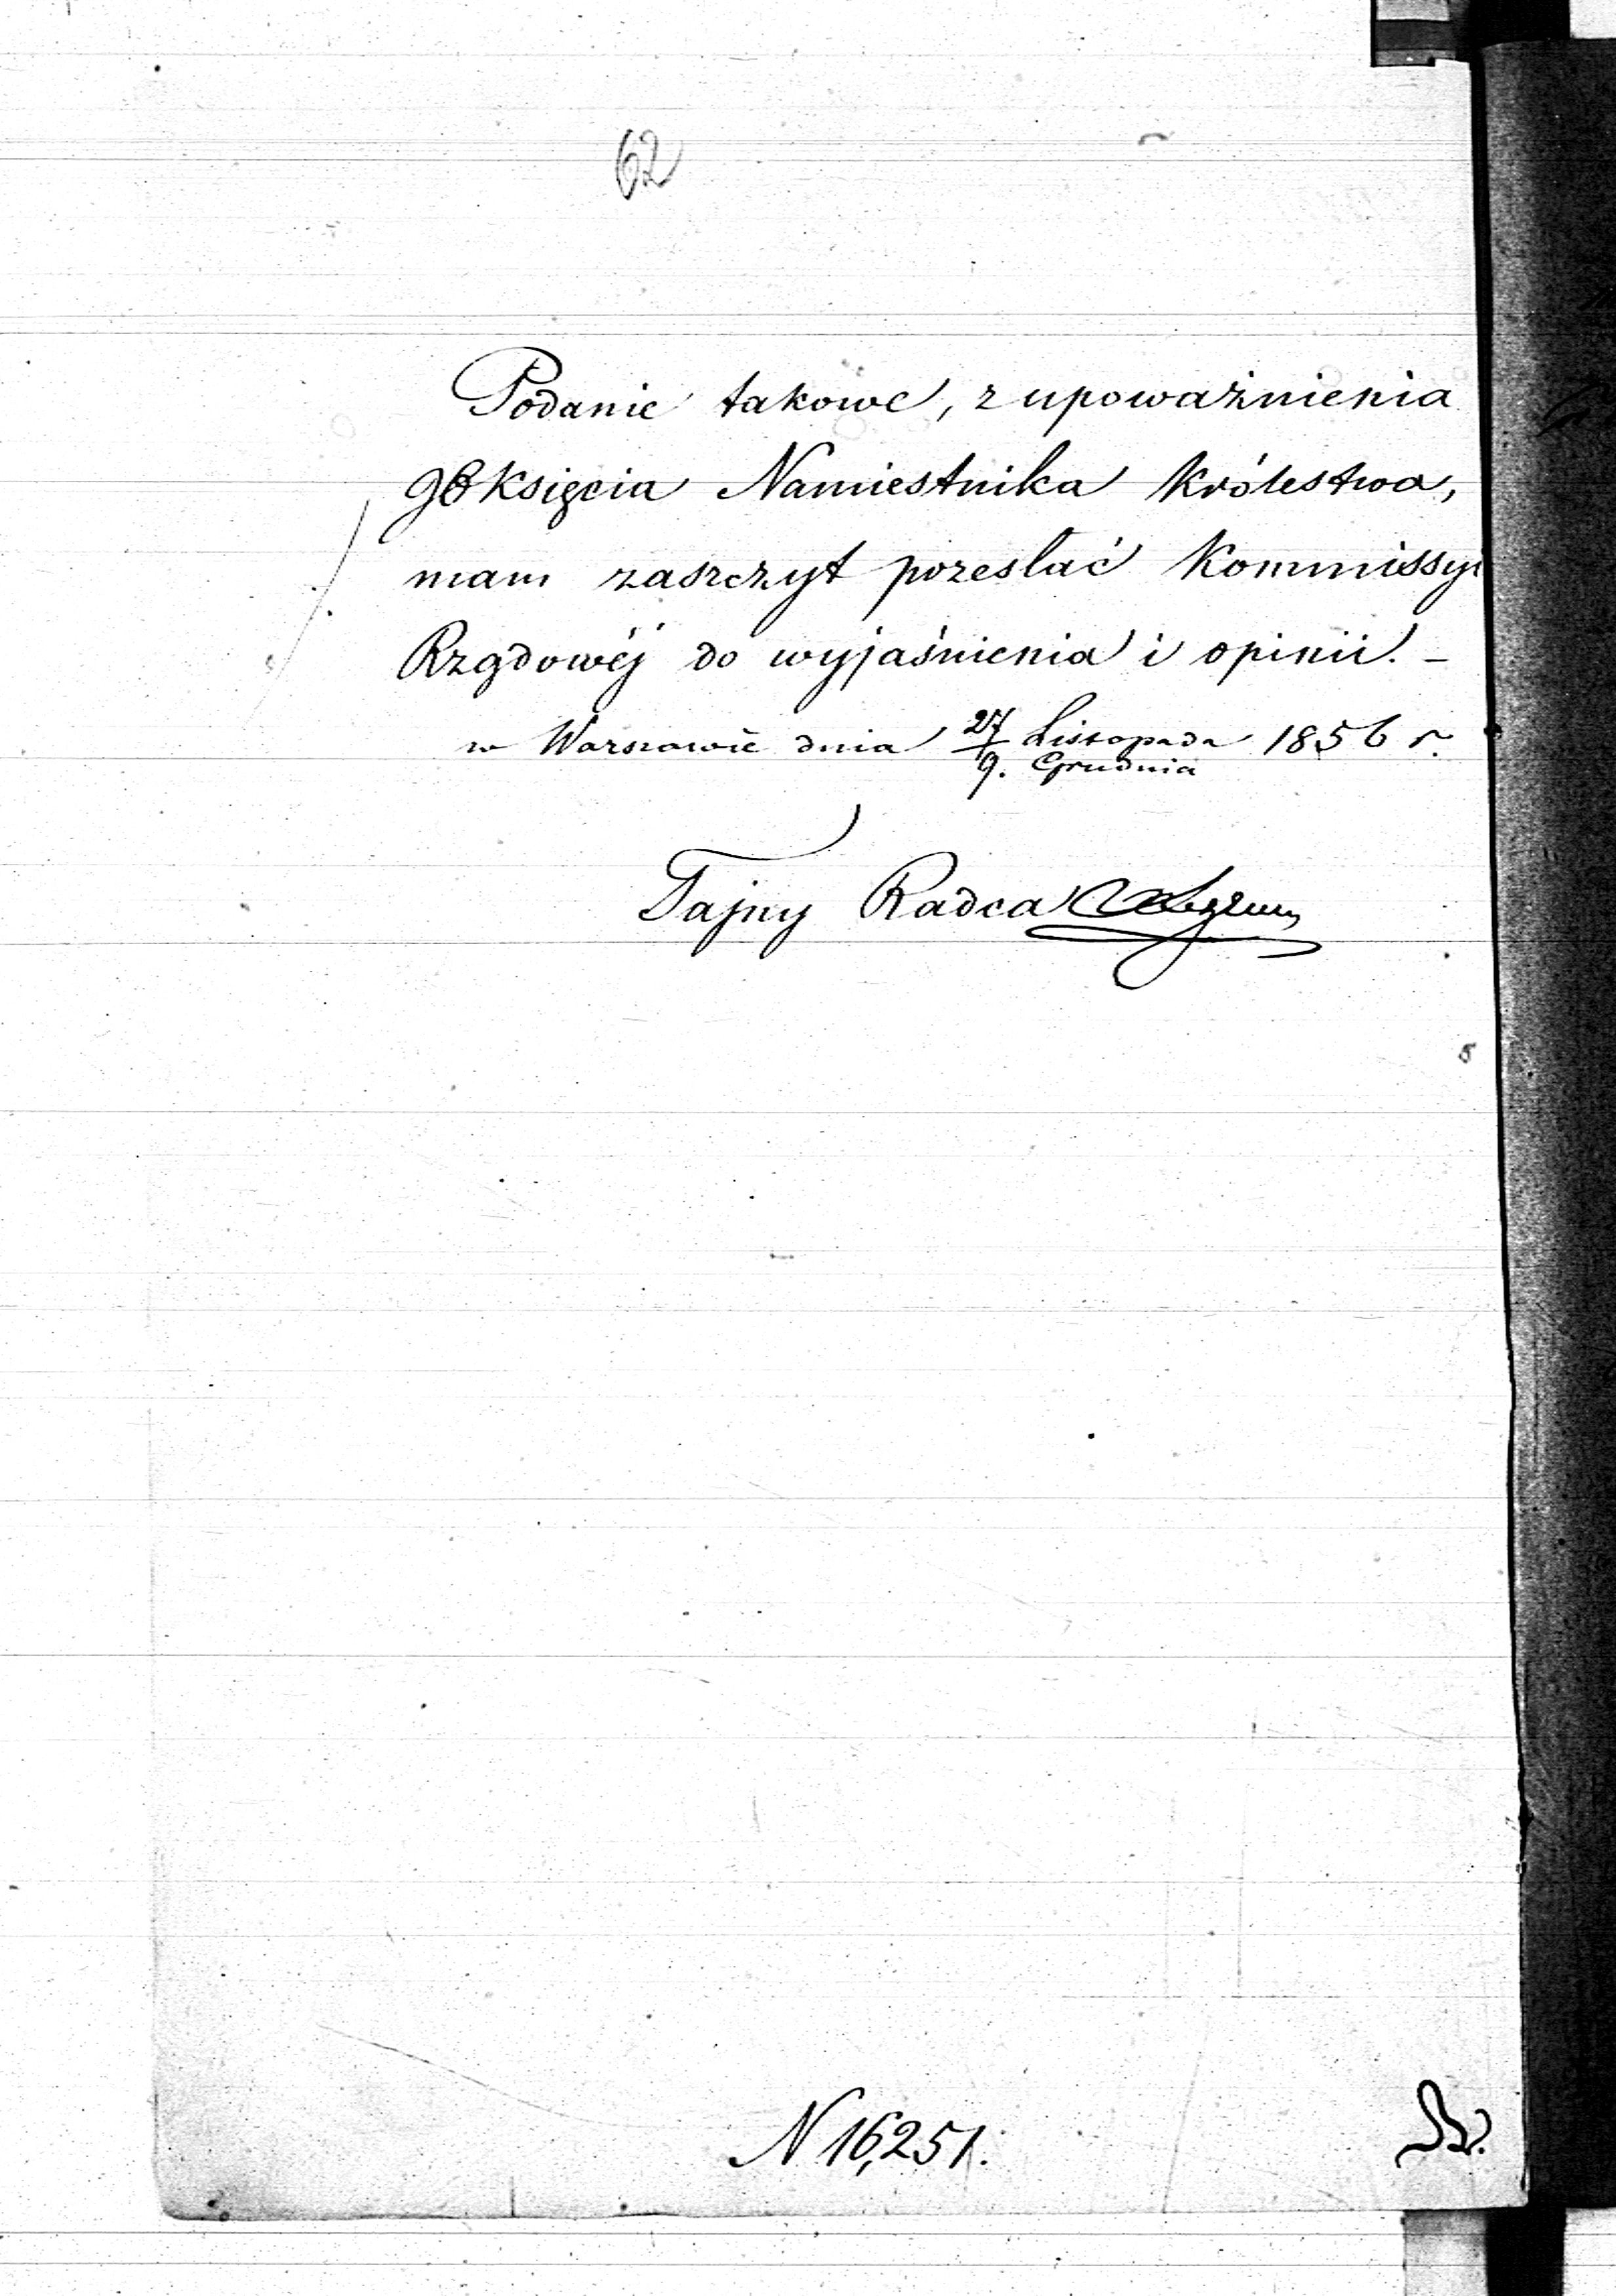 62
Podanie takowe, z upoważnienia
JO Księcia Namiestnika Królestwa,
mam zaszczyt przesłać Kommissyi
Rządowéj do wyjaśnienia i opinii. –
w Warszawie dnia 27/9. Listopada/Grudnia 1856 r.
Tajny Radca
N 16,251.